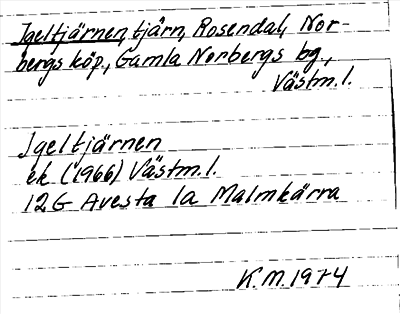 Igeltjärnen, tjärn, Rosendal, Nor-
bergs köp., Gamla Norbergs bg.,
Västm.l.
Igeltjärnen
ek (1966) Västm.l.
12G Avesta 1a Malmkärra
K.M. 1974